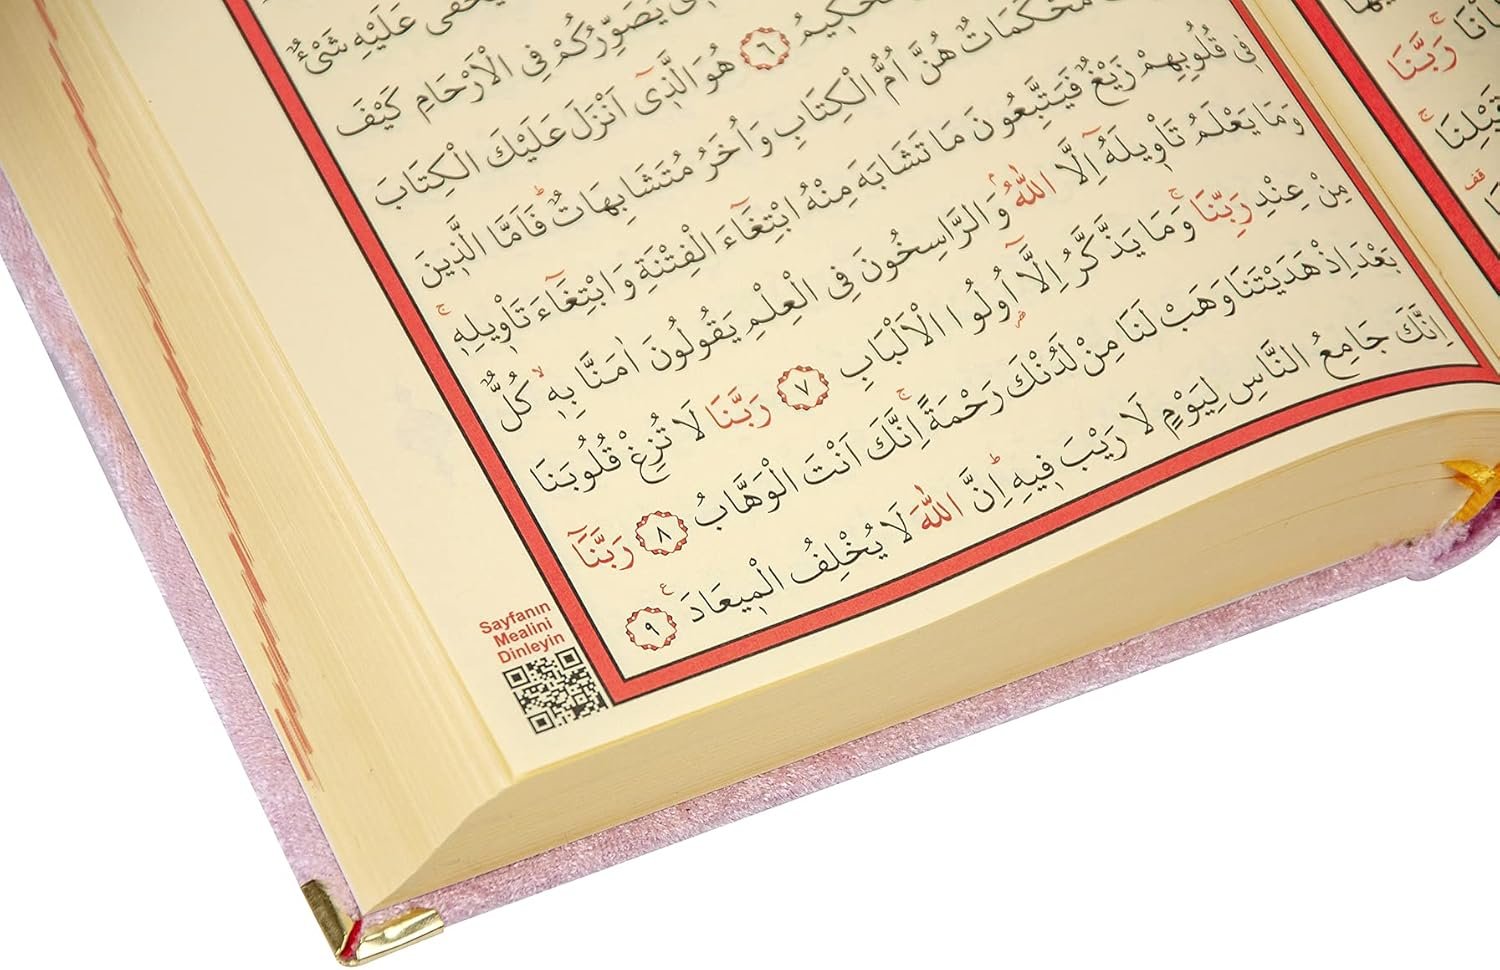 رَبَّنَا
عَلَيْهِ شَيْءٌ
يُصَوِّرُكُمْ فِى الْاَرْحَامِ كَيْفَ
الْحَكِيمُ ٦ هُوَ الَّذٖٓى اَنْزَلَ عَلَيْكَ الْكِتَابَ
مُحْكَمَاتٌ هُنَّ اُمُّ الْكِتَابِ وَاُخَرُ مُتَشَابِهَاتٌؕ فَاَمَّا الَّذٖينَ
فٖى قُلُوبِهِمْ زَيْغٌ فَيَتَّبِعُونَ مَا تَشَابَهَ مِنْهُ ابْتِغَٓاءَ الْفِتْنَةِ وَابْتِغَٓاءَ تَاْوٖيلِهٖۚ
وَمَا يَعْلَمُ تَاْوٖيلَهُٓ اِلَّا اللّٰهُۢ وَالرَّاسِخُونَ فِى الْعِلْمِ يَقُولُونَ اٰمَنَّا بِهٖۙ كُلٌّ
مِنْ عِنْدِ رَبِّنَاۚ وَمَا يَذَّكَّرُ اِلَّٓا اُولُوا الْاَلْبَابِ ٧ رَبَّنَا لَا تُزِغْ قُلُوبَنَا
بَعْدَ اِذْ هَدَيْتَنَا وَهَبْ لَنَا مِنْ لَدُنْكَ رَحْمَةًۚ اِنَّكَ اَنْتَ الْوَهَّابُ ٨ رَبَّنَٓا
اِنَّكَ جَامِعُ النَّاسِ لِيَوْمٍ لَا رَيْبَ فٖيهِؕ اِنَّ اللّٰهَ لَا يُخْلِفُ الْمٖيعَادَ ٩
Sayfanın
Mealini
Dinleyin